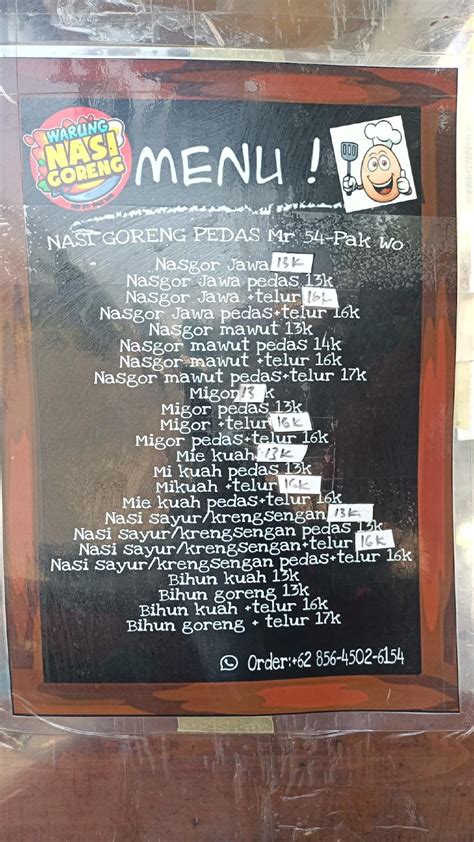 WARUNG
NASI
GORENG
MENU !
NASI GORENG PEDAS Mr 54-Pak Wo
Nasgor Jawa 13K
Nasgor Jawa pedas 13k
Nasgor Jawa +telur 16K
Nasgor Jawa pedas+telur 16k
Nasgor mawut 13k
Nasgor mawut pedas 14k
Nasgor mawut +telur 16k
Nasgor mawut pedas+telur 17k
Migor 13 k
Migor pedas 13k
Migor +telur 16K
Migor pedas+telur 16k
Mie kuah 13K
Mi kuah pedas 13k
Mikuah +telur 16K
Mie kuah pedas+telur 16k
Nasi sayur/krengsengan 13K
Nasi sayur/krengsengan pedas 13k
Nasi sayur/krengsengan+telur 16K
Nasi sayur/krengsengan pedas+telur 16k
Bihun kuah 13k
Bihun goreng 13k
Bihun kuah +telur 16k
Bihun goreng + telur 17k
Order:+62 856-4502-6154